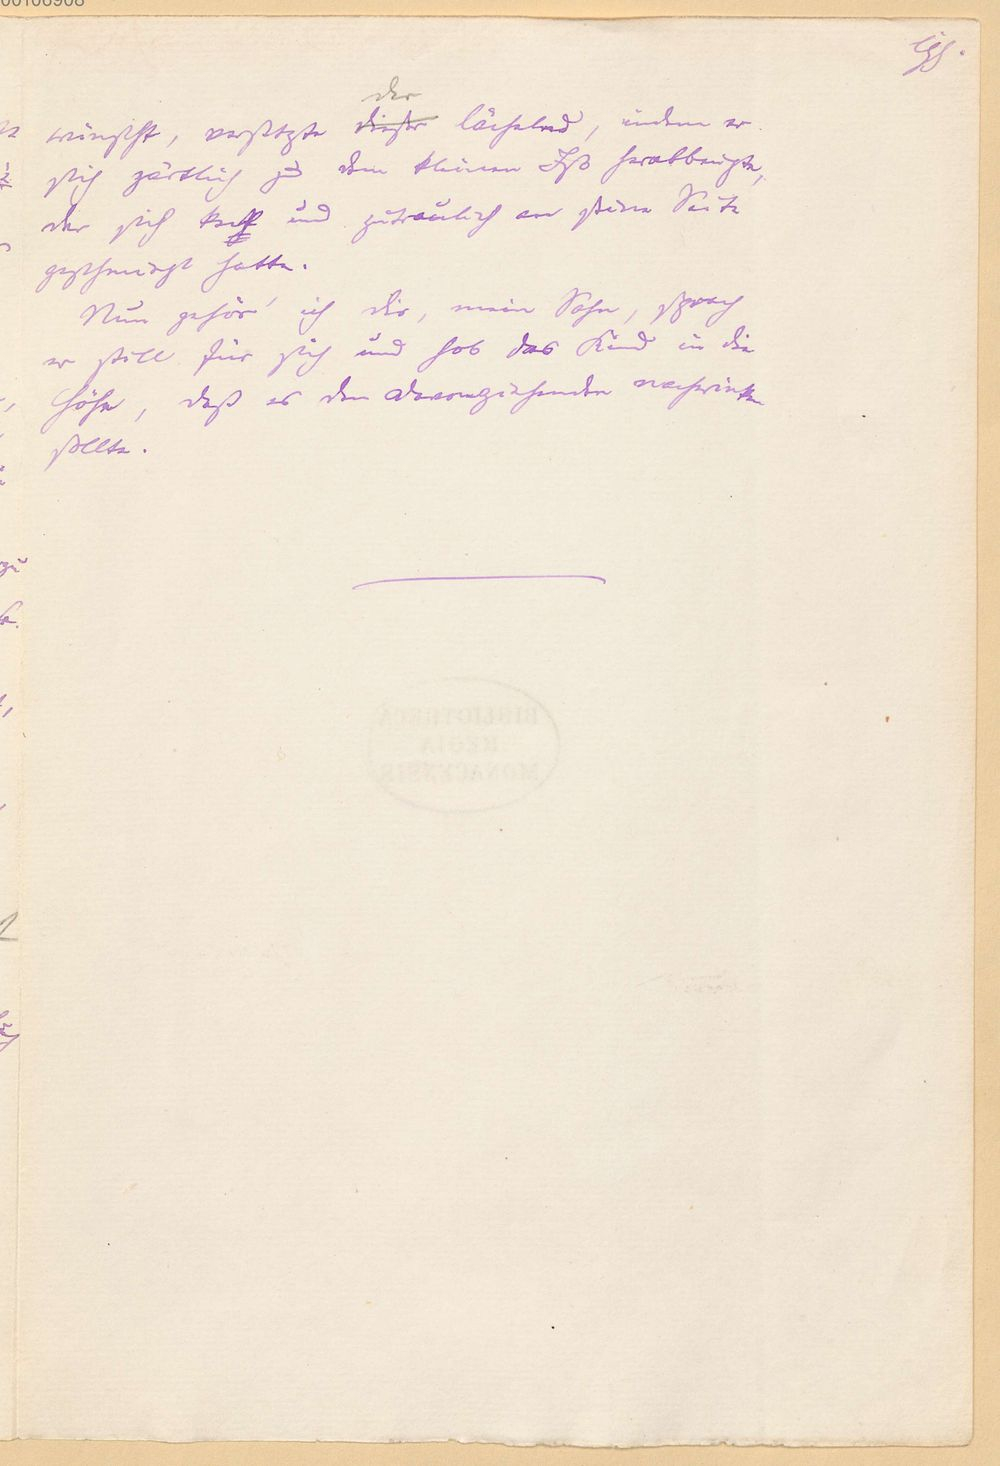 der
wünscht, versetzte dieser lächelnd, indem er
sich zärtlich zu dem kleinen herabbeugte,
der sich und zutraulich an seine Seite
geschmiegt hatte.
Nun gehör' ich dir, mein Sohn, sprach
er still für sich und hob das Kind in die
Höhe, daß es den davonziehenden nachwinken
sollte.
BIBLIOTHECA
REGIA
MONACENSIS